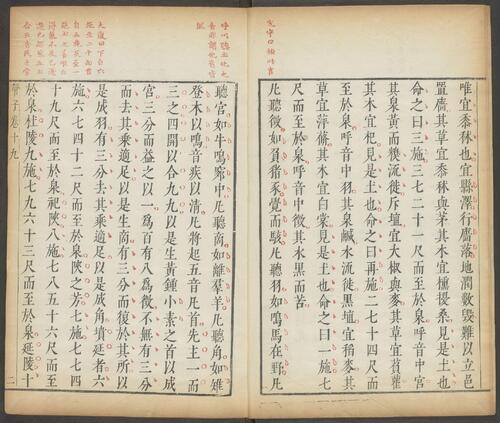 唯宜黍秫也宜縣澤行廧落地潤數毀難以立邑
置廧其草宜黍秫與茅其木宜櫄擾桑見是土也
命之曰三施三七二十一尺而至於泉呼音中宮
其泉黃而糗流徙斥埴宜大椒與麥其草宜萯雚
其木宜杞見是土也命之曰再施二七十四尺而
至於泉呼音中羽其泉鹹水流徙黑埴宜稻麥其
草宜苹蓨其木宜白棠見是土也命之曰一施七
尺而至於泉呼音中徵其水黑而苦
凡聽徵如負豬豕覺而駭凡聽羽如鳴馬在野凡
聽宮如牛鳴窌中凡聽商如離羣羊凡聽角如雉
登木以鳴音疾以清凡將起五音凡首先主一而
三之四開以合九九以是生黃鍾小素之首以成
宮三分而益之以一爲百有八爲徵不無有三分
而去其乘適足以是生商有三分而復於其所以
是成羽有三分去其乘適足以是成角墳延者六
施六七四十二尺而至於泉陜之芳七施七七四
十九尺而至於泉祀陜八施七八五十六尺而至
於泉杜陵九施七九六十三尺而至於泉延陵十
管子卷十九
二